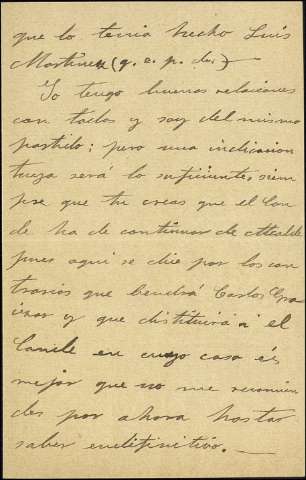 que lo tenia hecho Luis
Martinez (q. e. p. d.)
Yo tengo buenas relaciones
con todos y soy del mismo
partido; pero una indicacion
tuya será lo suficiente, siem
pre que tu creas que el Con
de ha de continuar de Alcalde
pues aqui se dice por los con
trarios que bendrá Carlos
y que distituirá á el
Conde en cuyo caso és
mejor que no me recomien
des por ahora hastar
saber endifinitivo.